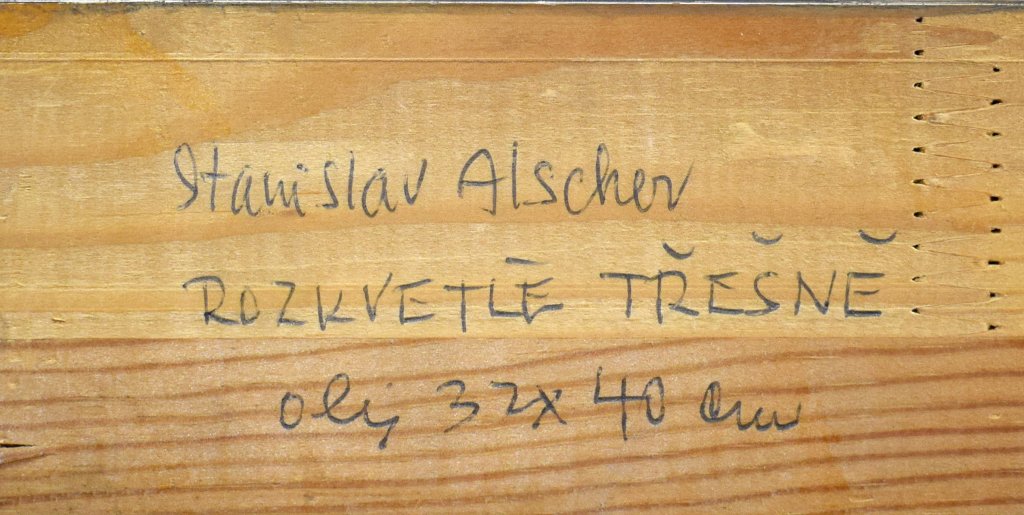 Stanislav Alscher
ROZKVETLÉ TŘEŠNĚ
olej 32x40 cm